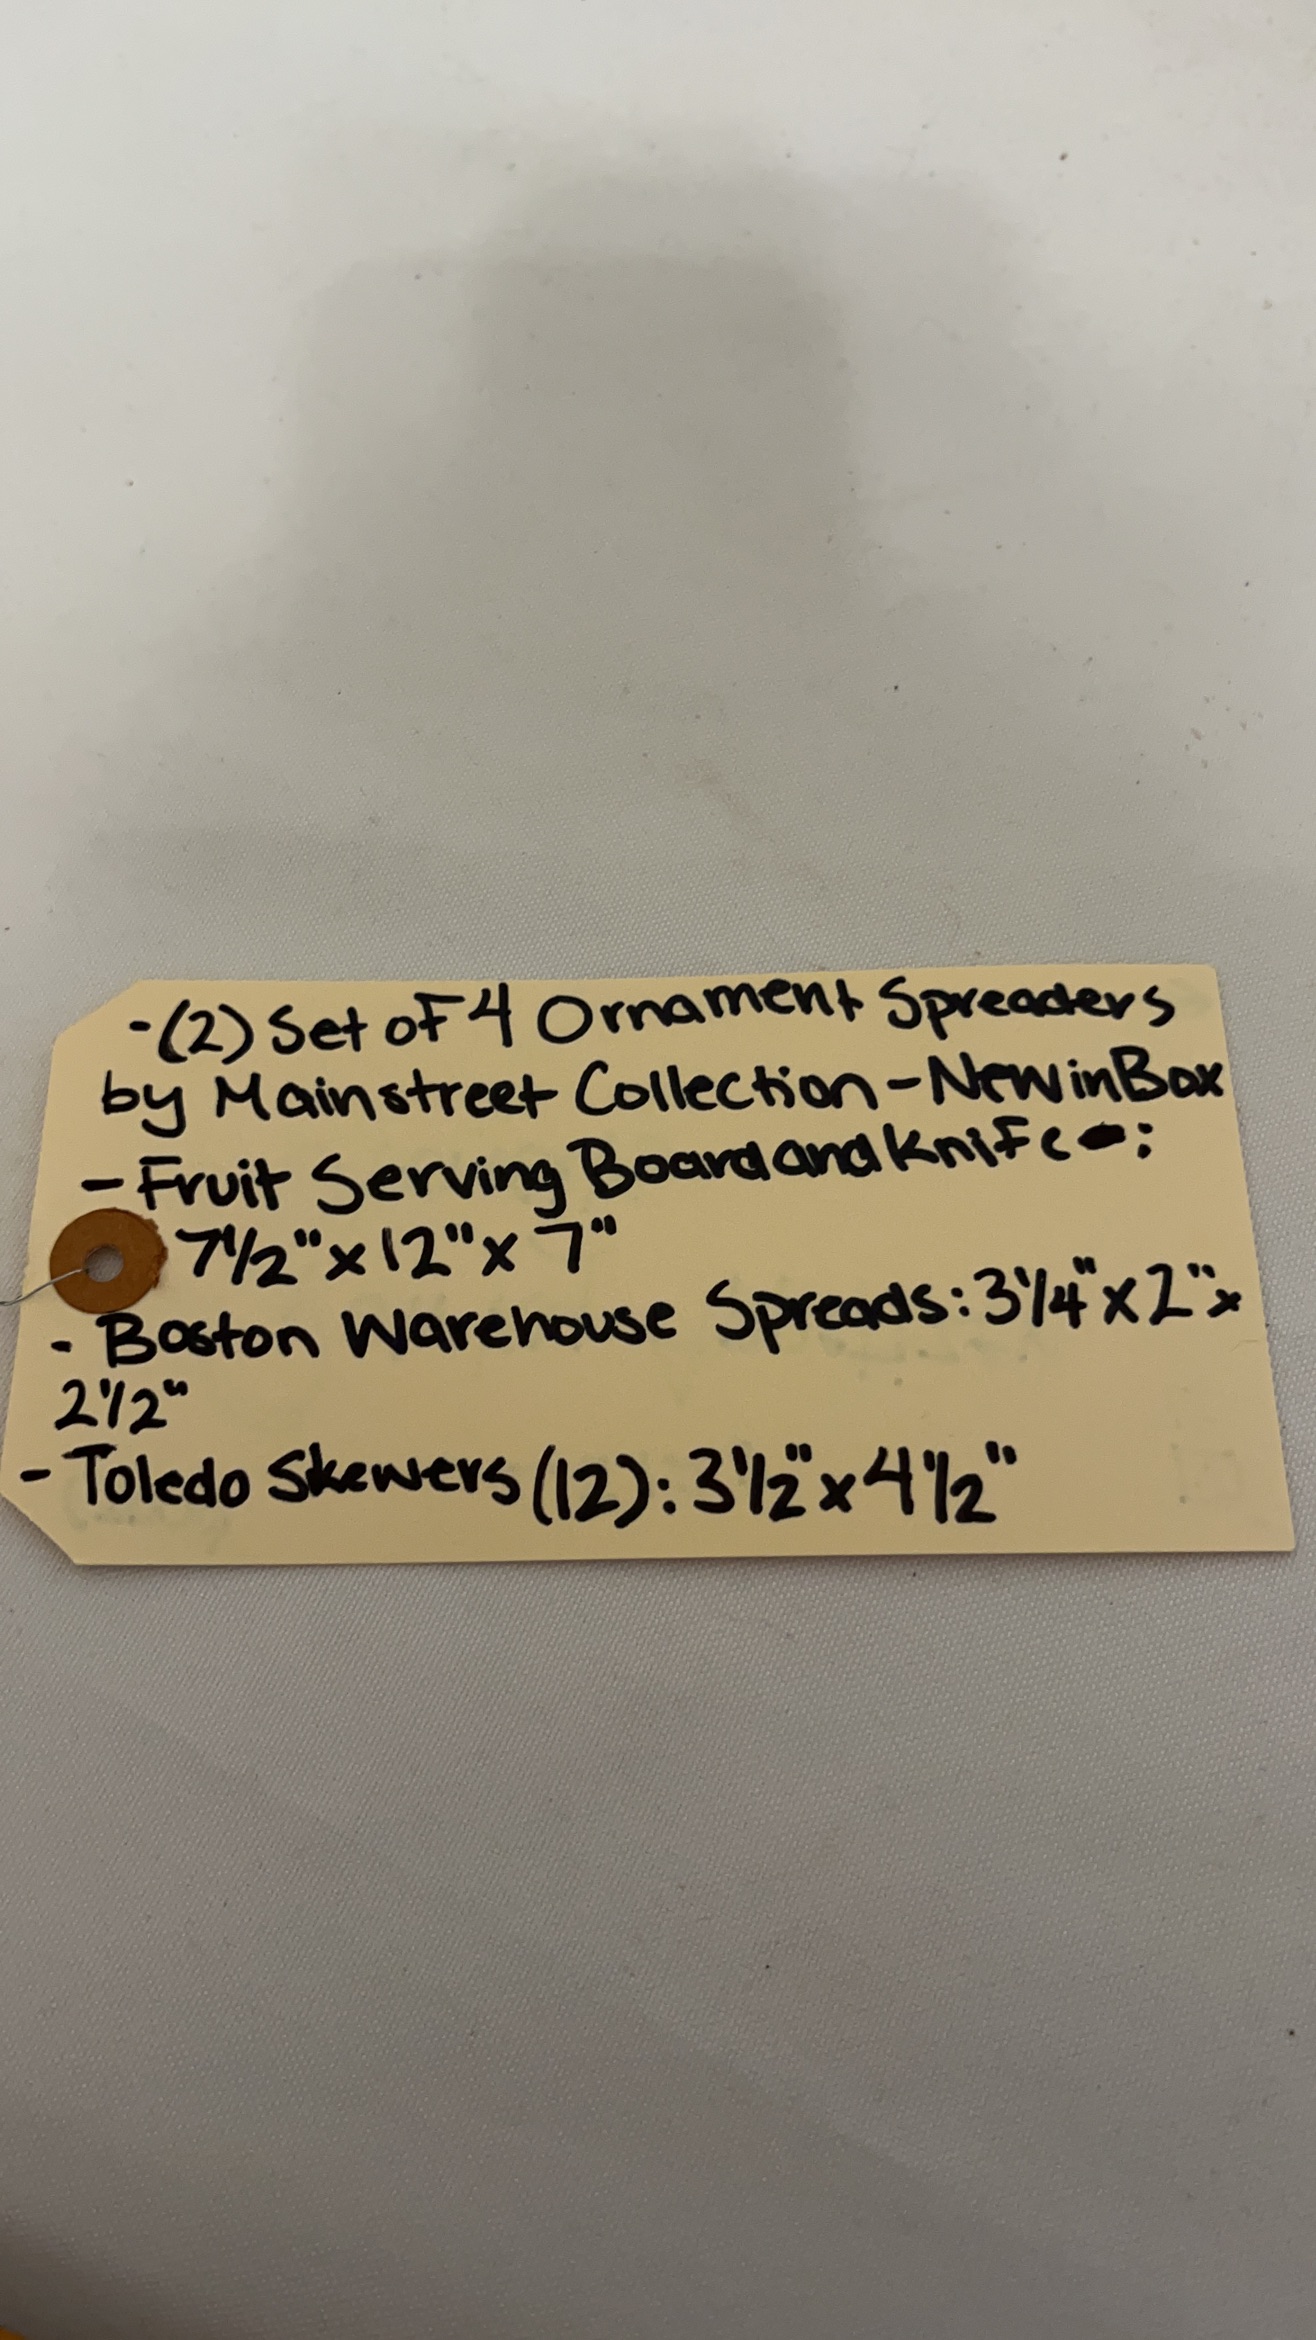 -(2) Set of 4 Ornament Spreaders
by Mainstreet Collection - New in Box
- Fruit Serving Board and Knife :
7 1/2" x 12" x 7"
- Boston Warehouse Spreads: 3 1/4" x 2" x
2 1/2"
- Toledo Skewers (12): 3 1/2" x 4 1/2"